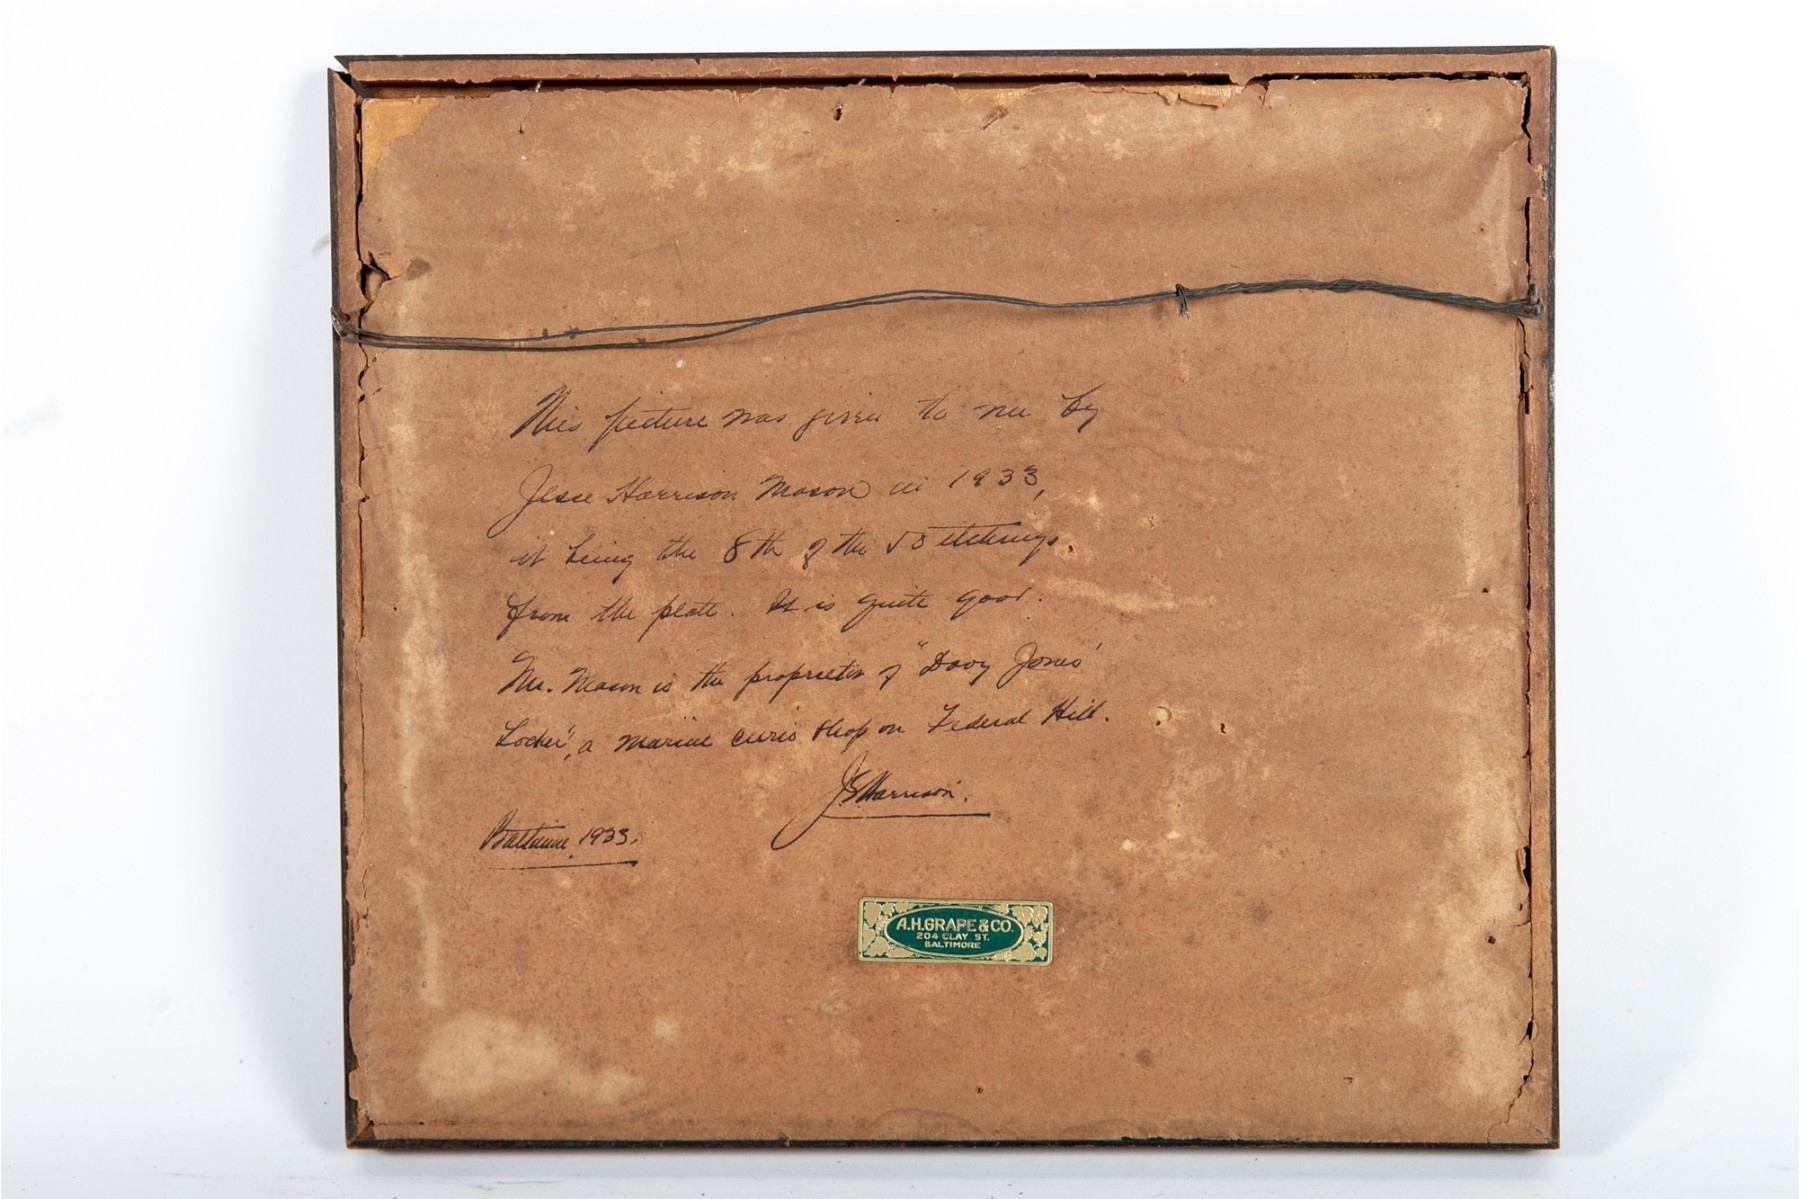 This picture was given to me by
Jesse Harrison Mason in 1933,
it being the 8th of the 50 etchings
from the plate. It is quite good.
Mr. Mason is the proprietor of "Davy Jones'
Locker", a marine curio shop on Federal Hill.
JSHarrison.
Baltimore, 1933.
A.H.GRAPE & CO.
204 CLAY ST.
BALTIMORE